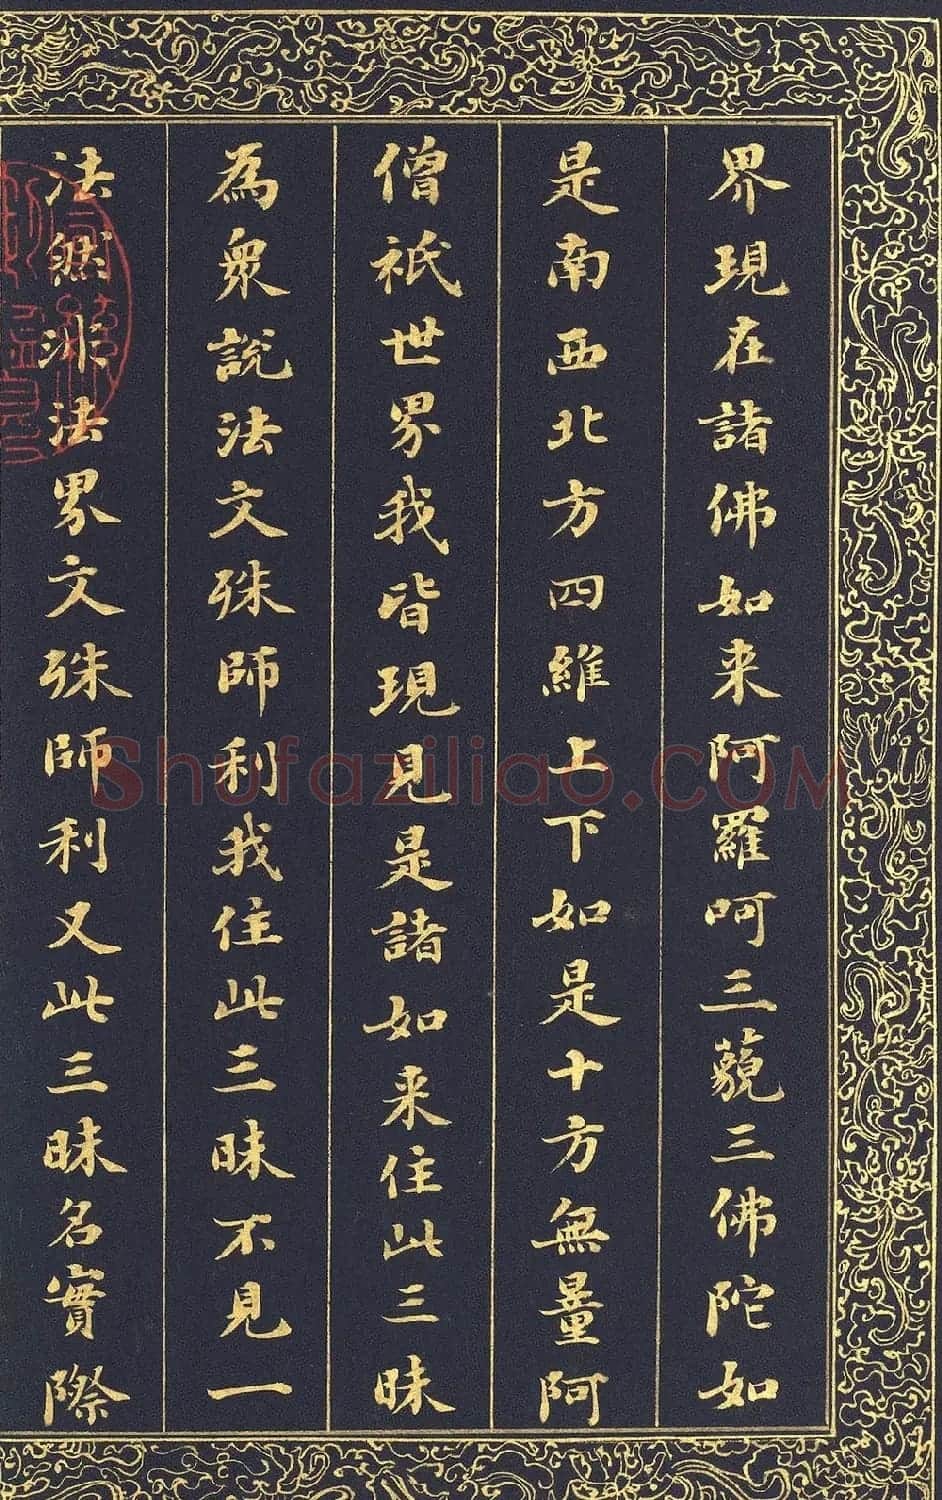 界現在諸佛如来阿羅呵三藐三佛陀如
是南西北方四維上下如是十方無量阿
僧祇世界我皆現見是諸如来住此三昧
為衆說法文殊師利我住此三昧不見一
法然非法界文殊師利又此三昧名實際
Shufaziliao.COM